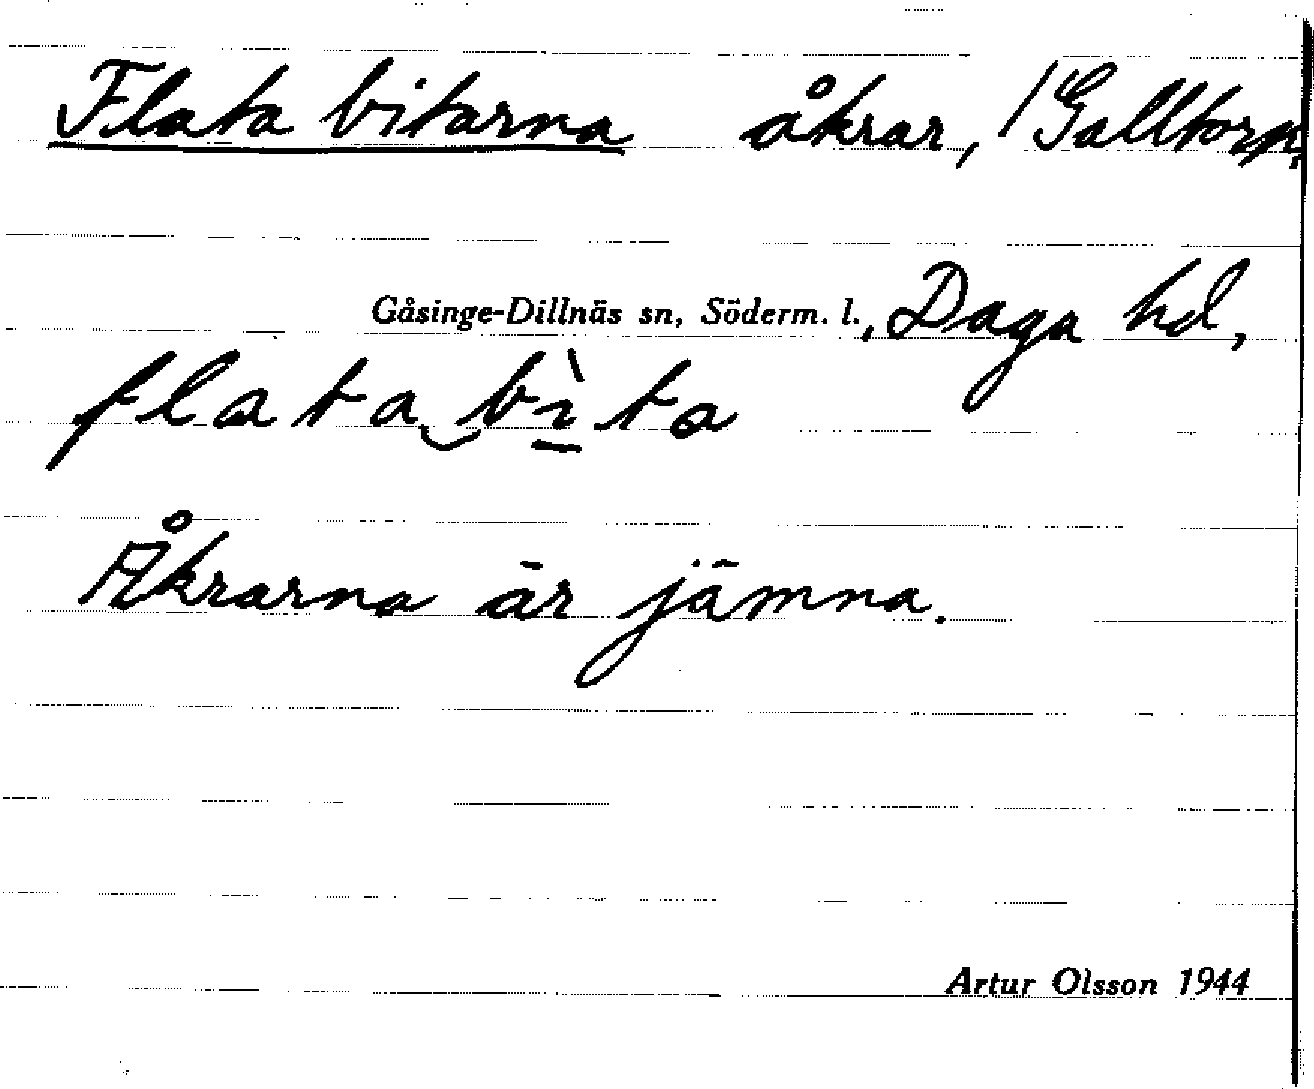 Flata bitarna åkrar, /Galltorp,
Gåsinge-Dillnäs sn, Söderm. l., Daga hd,
flata‿bìta
Åkrarna är jämna.
Artur Olsson 1944